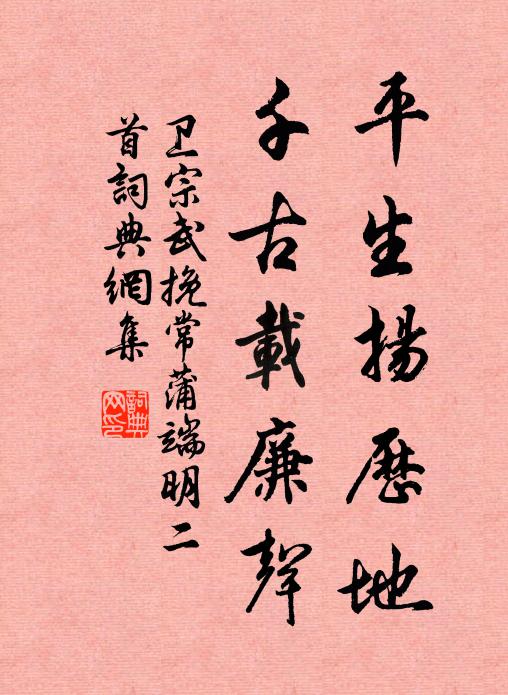 平生揚歷地
千古載廉聲
卫宗武挽常蒲端明二
首詞典網集
詞典網印